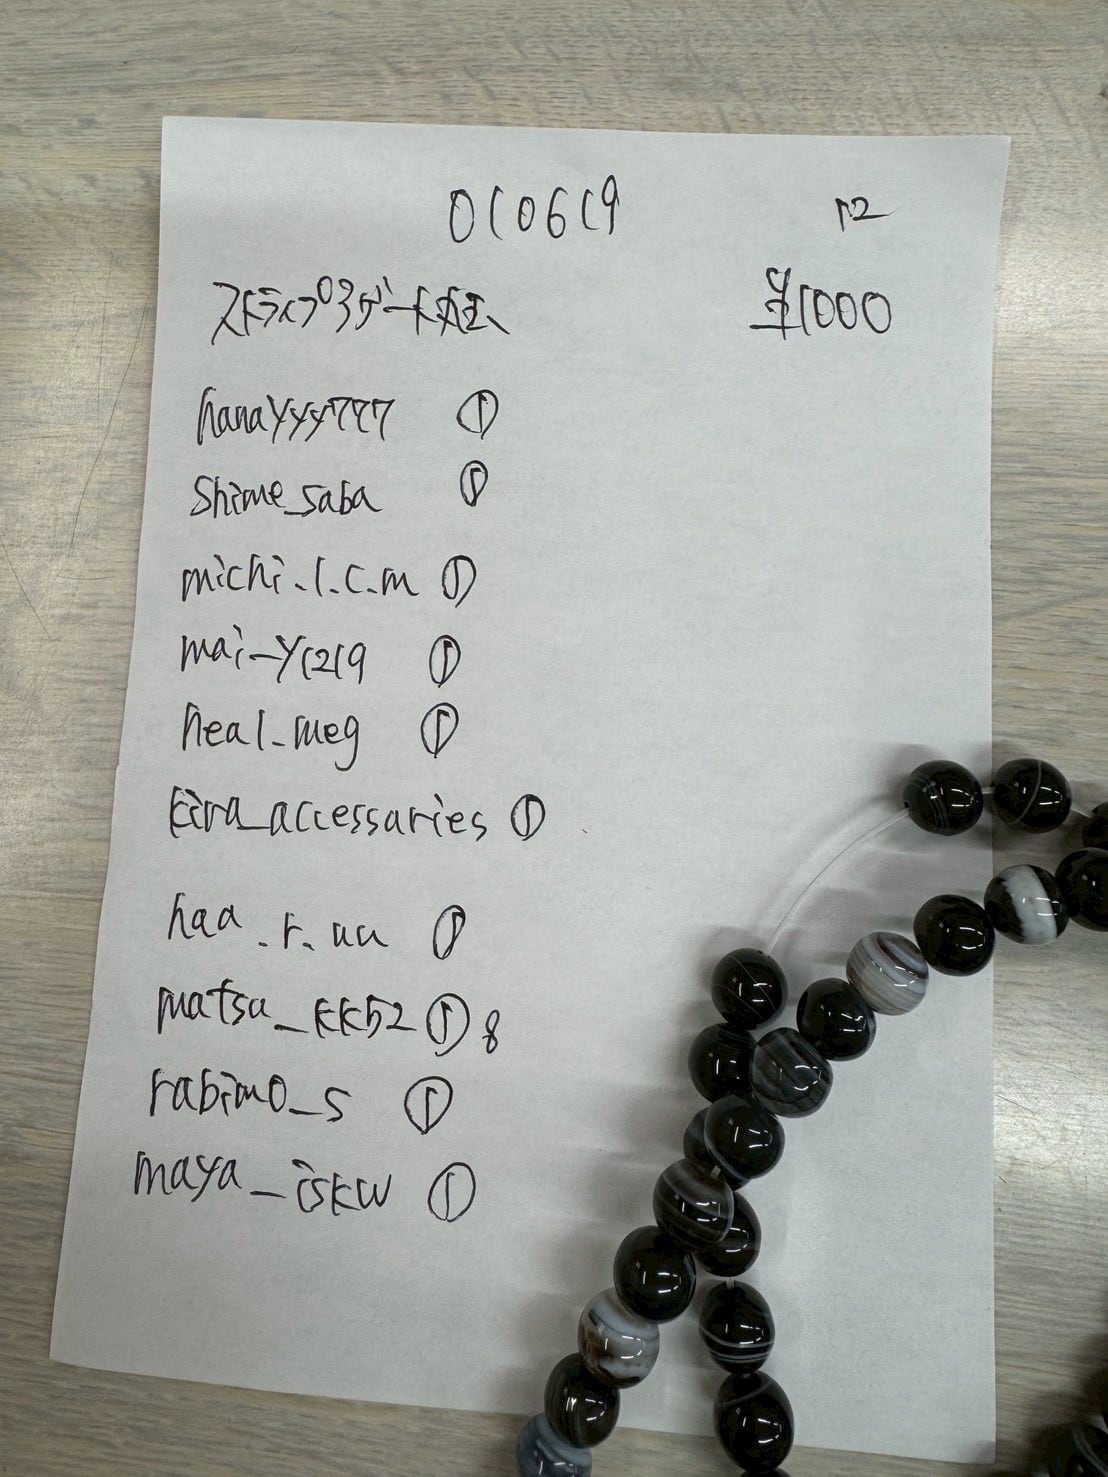 010619 12
ストライプアゲート玉 ¥1000
hanayyy777 ①
shime_saba ①
michi.l.c.m ①
mai_y1219 ①
heal_meg ①
kira_accessaries ①
haa.r.uu ①
matsu_kk52 ① 8
rabimo_s ①
maya_iskw ①